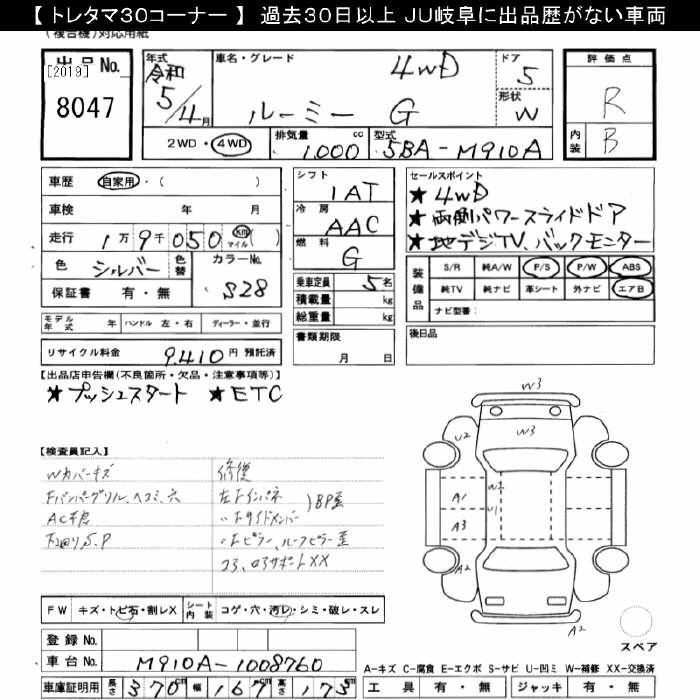 【トレタマ30コーナー】 過去30日以上 JU岐阜に出品歴がない車両
(複合機)対応用紙
出品No.
[2019]
8047
年式
令和
5/4月
車名・グレード
4WD
ルーミー G
ドア
5
形状
W
評価点
R
内装
B
2WD・4WD
排気量 1000 cc
型式 5BA-M910A
車歴 自家用・( )
車検 年 月
走行 1万9千050 km マイル( )
色 シルバー 色替 カラーNo. S28
保証書 有・無
モデル年式 年 ハンドル 左・右 ディーラー・並行
リサイクル料金 9,410円 預託済
シフト
1AT
冷房
AAC
燃料
G
乗車定員 5名
積載量 kg
総重量 kg
書類期限
月 日
セールスポイント
★4WD
★両側パワースライドドア
★地デジTV、バックモニター
装備品
S/R 純A/W P/S P/W ABS
純TV 純ナビ 革シート 外ナビ エアB
ナビ型番:
後日品
【出品店申告欄(不良箇所・欠品・注意事項等)】
★プッシュスタート ★ETC
【検査員記入】
Wカバーキズ
Fバンパーグリル、ヘコミ、穴
AC不良
下回りS.P
修復
左Fインパネ
〃Fサイドメンバー
BP歪
〃Fピラー、ルーフピラー歪
コア、ロアサポートXX
W3
W3
U2
A1
A3
W2
U1
A2
A2
スペア
FW キズ・トビ石・割レX シート内装 コゲ・穴・汚レ・シミ・破レ・スレ
登録No.
車台No. M910A-1008760
車庫証明用 長さ 370cm 幅 167cm 高さ 173cm
A-キズ C-腐食 E-エクボ S-サビ U-凹ミ W-補修 XX-交換済
工具 有・無 ジャッキ 有・無